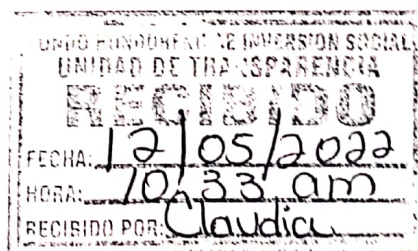 FONDO HONDUREÑO DE INVERSION SOCIAL
UNIDAD DE TRANSPARENCIA
RECIBIDO
FECHA: 12/05/2022
HORA: 10:33 am
RECIBIDO POR: Claudia